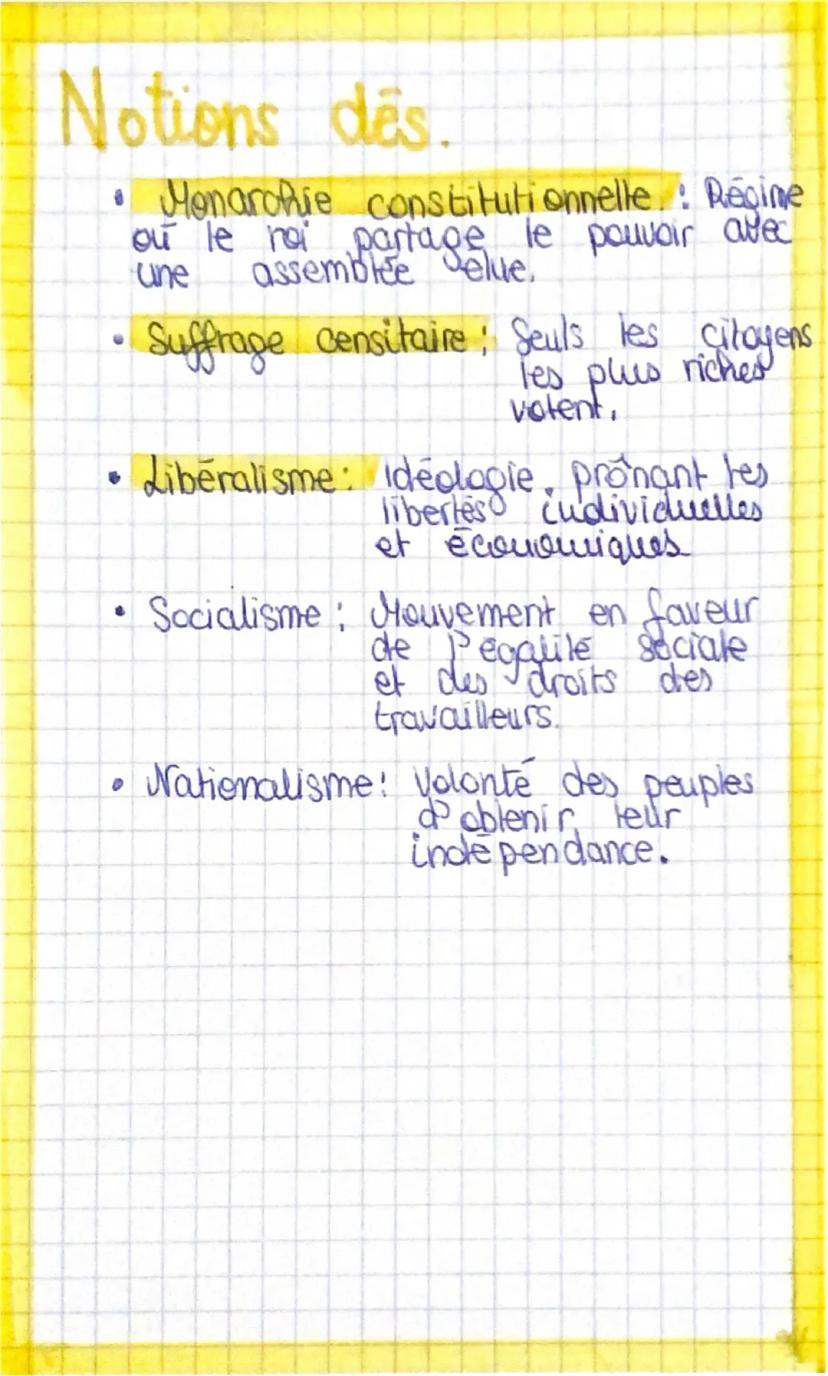 Notions clés.
• Monarchie constitutionnelle. : Régime
où le roi partage le pouvoir avec
une assemblée élue.
• Suffrage censitaire : Seuls les citoyens
les plus riches
votent.
• Libéralisme : Idéologie prônant les
libertés individuelles
et économiques
• Socialisme : Mouvement en faveur
de l'égalité sociale
et des droits des
travailleurs.
• Nationalisme : Volonté des peuples
d'obtenir leur
indépendance.